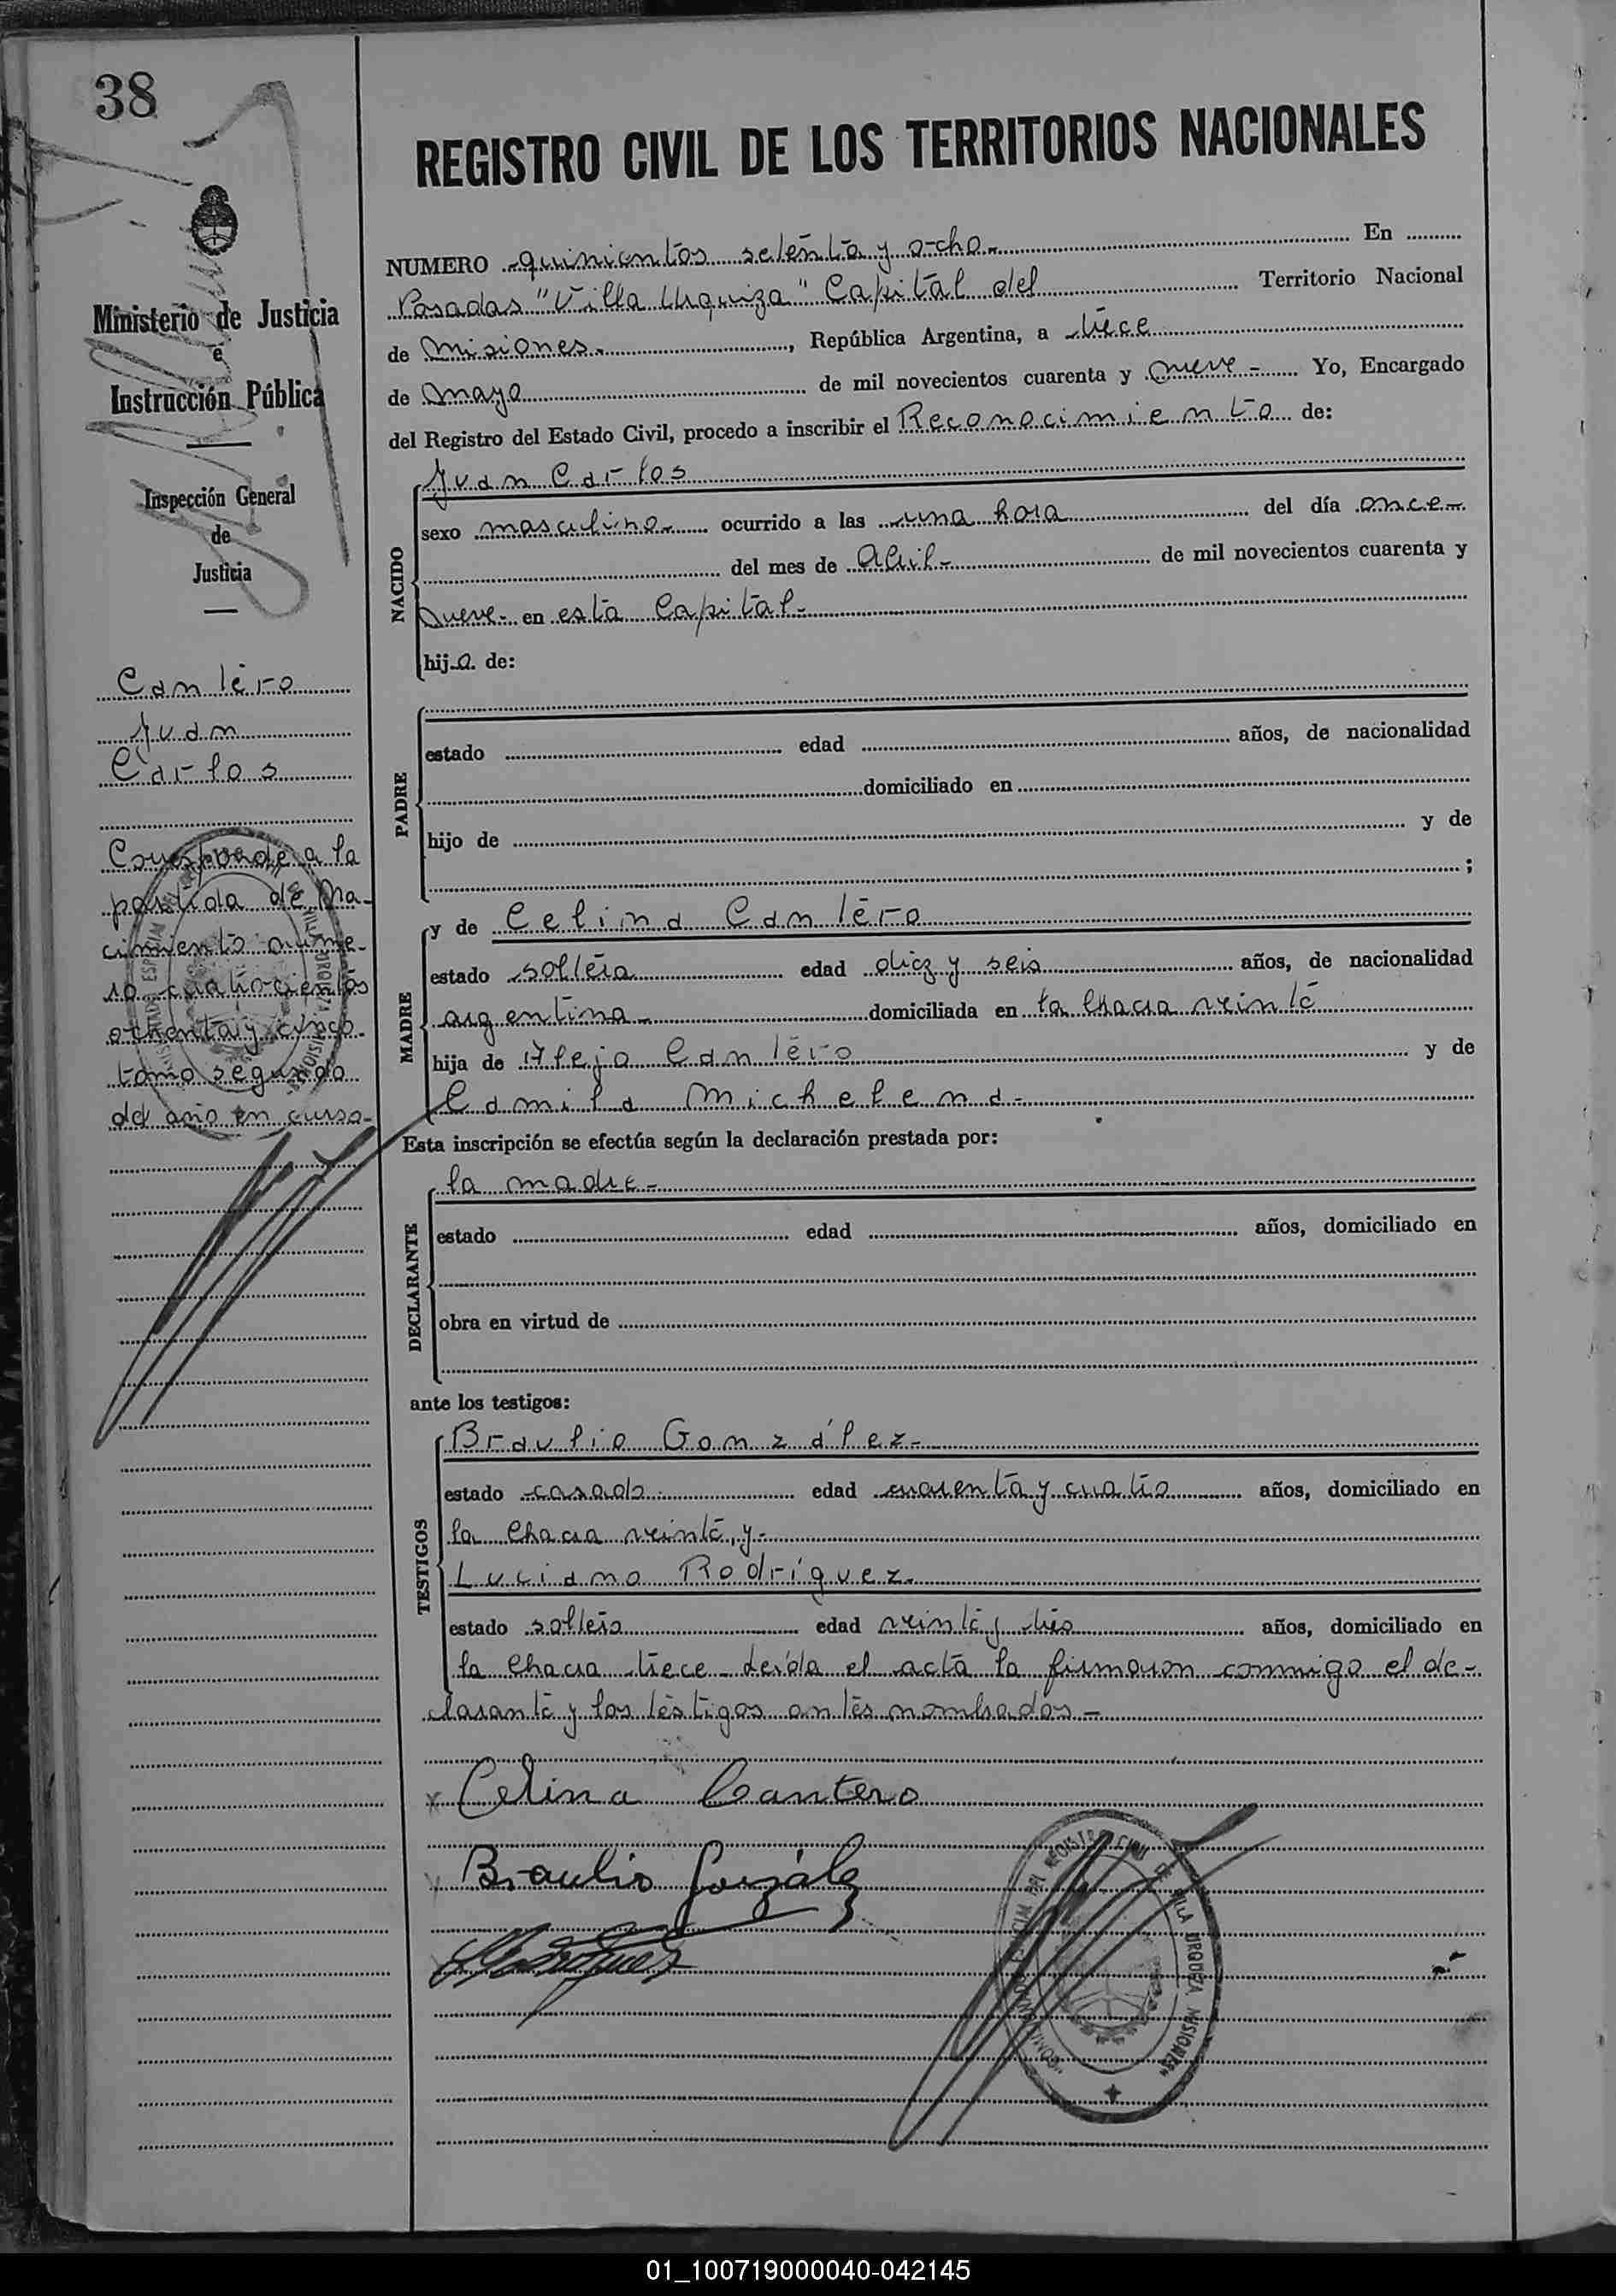 38
REGISTRO CIVIL DE LOS TERRITORIOS NACIONALES
Ministerio de Justicia
e
Instrucción Pública
Inspección General
de
Justicia
Cantero
Juan
Carlos
Corresponde a la
partida de Na-
cimiento núme-
ro cuatrocientos
ochenta y cinco
tomo segundo
del año en curso-
NUMERO -quinientos setenta y ocho- En
Posadas "Villa Urquiza" Capital del Territorio Nacional
de Misiones-, República Argentina, a trece
de Mayo de mil novecientos cuarenta y nueve- Yo, Encargado
del Registro del Estado Civil, procedo a inscribir el Reconocimiento de:
NACIDO
Juan Carlos
sexo masculino- ocurrido a las una hora del día once-
del mes de Abril- de mil novecientos cuarenta y
nueve- en esta Capital-
hijo de:
PADRE
estado edad años, de nacionalidad
domiciliado en
hijo de y de
;
MADRE
y de Celina Cantero
estado soltera edad diez y seis años, de nacionalidad
argentina- domiciliada en la chacra veinte
hija de Alejo Cantero y de
Camila Michelena-
Esta inscripción se efectúa según la declaración prestada por:
DECLARANTE
la madre-
estado edad años, domiciliado en
obra en virtud de
ante los testigos:
TESTIGOS
Braulio González-
estado casado edad cuarenta y cuatro años, domiciliado en
la chacra veinte, y-
Luciano Rodríguez-
estado soltero edad veinte y tres años, domiciliado en
la chacra trece- Leída el acta la firmaron conmigo el de-
clarante y los testigos antes nombrados-
x Celina Cantero
Braulio González
REGISTRO CIVIL DE VILLA URQUIZA MISIONES
01_100719000040-042145